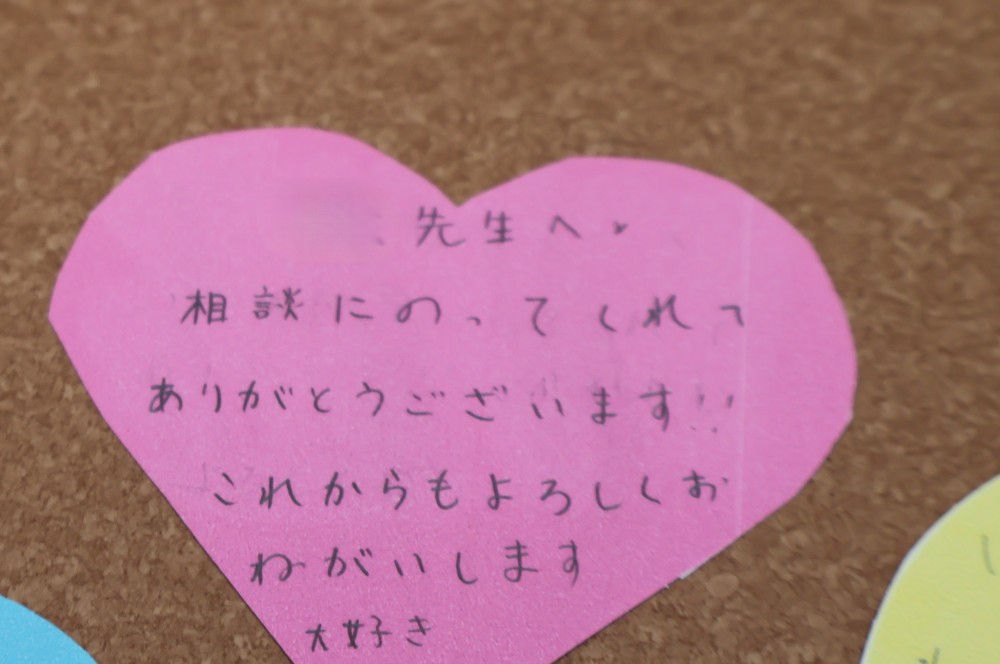 先生へ
相談にのってくれて
ありがとうございます!!
これからもよろしくお
ねがいします
大好き